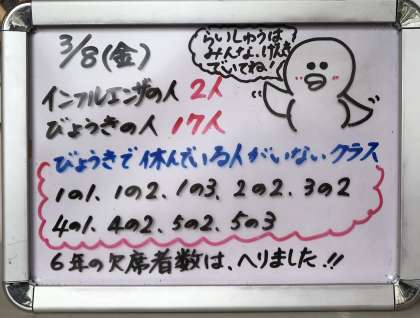 3/8(金)
らいしゅうは
みんな、げんき
でいてね!
インフルエンザの人 2人
びょうきの人 17人
びょうきで休んでいる人がいないクラス
1の1、1の2、1の3、2の2、3の2
4の1、4の2、5の2、5の3
6年の欠席者数は、へりました!!